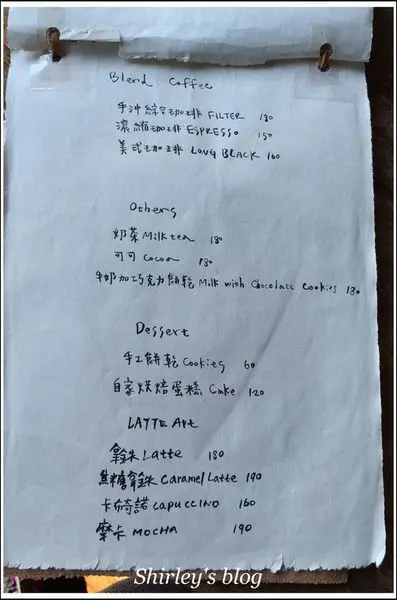 Blend Coffee
手沖綜合咖啡 FILTER 180
濃縮咖啡 ESPRESSO 150
美式咖啡 LONG BLACK 160
Others
奶茶 Milk tea 180
可可 Cocoa 180
牛奶加巧克力餅乾 Milk with Chocolate Cookies 180
Dessert
手工餅乾 Cookies 60
自家烘焙蛋糕 Cake 120
LATTE Art
拿鉄 Latte 180
焦糖拿鉄 Caramel Latte 190
卡布奇諾 CapuccINO 160
摩卡 MOCHA 190
Shirley's blog